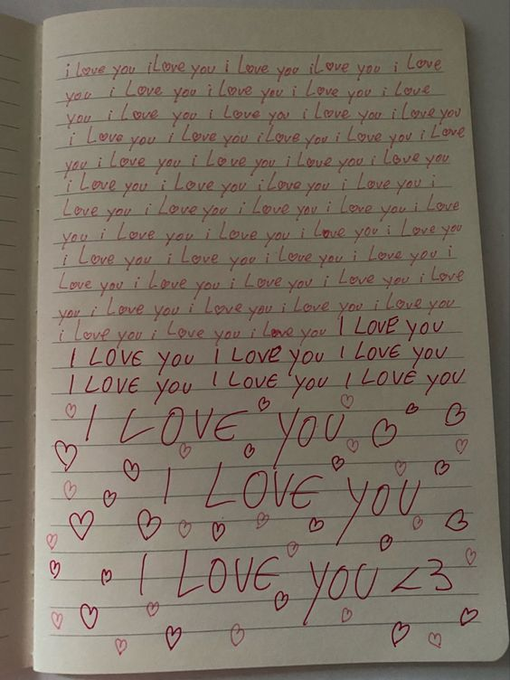 i Love you i Love you i Love you i Love you i Love
you i Love you i Love you i Love you i Love
you i Love you i Love you i Love you i Love you
i Love you i Love you i Love you i Love you i Love
you i Love you i Love you i Love you i Love you
i Love you i Love you i Love you i Love you i
Love you i Love you i Love you i Love you i Love
you i Love you i Love you i Love you i Love you
i Love you i Love you i Love you i Love you i
Love you i Love you i Love you i Love you i Love
you i Love you i Love you i Love you i Love you
i Love you i Love you i Love you I LOVE YOU
I LOVE YOU I LOVE YOU I LOVE YOU
I LOVE YOU I LOVE YOU I LOVE YOU
I LOVE YOU
I LOVE YOU
I LOVE YOU <3